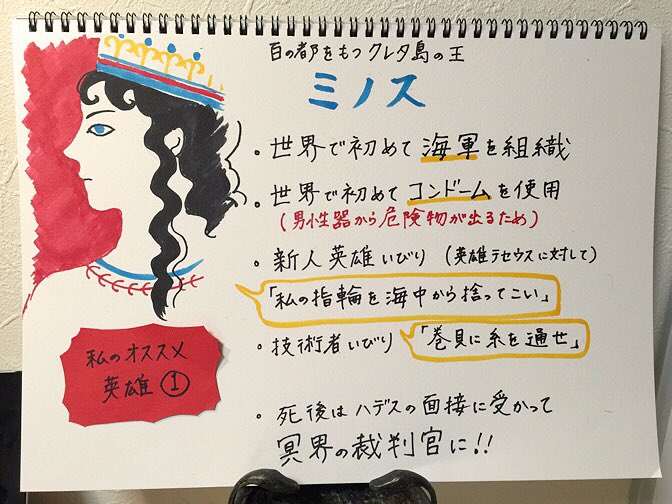 百の都をもつクレタ島の王
ミノス
・世界で初めて海軍を組織
・世界で初めてコンドームを使用
(男性器から危険物が出るため)
・新人英雄いびり (英雄テセウスに対して)
「私の指輪を海中から捨ってこい」
・技術者いびり 「巻貝に糸を通せ」
・死後はハデスの面接に受かって
冥界の裁判官に!!
私のオススメ
英雄①